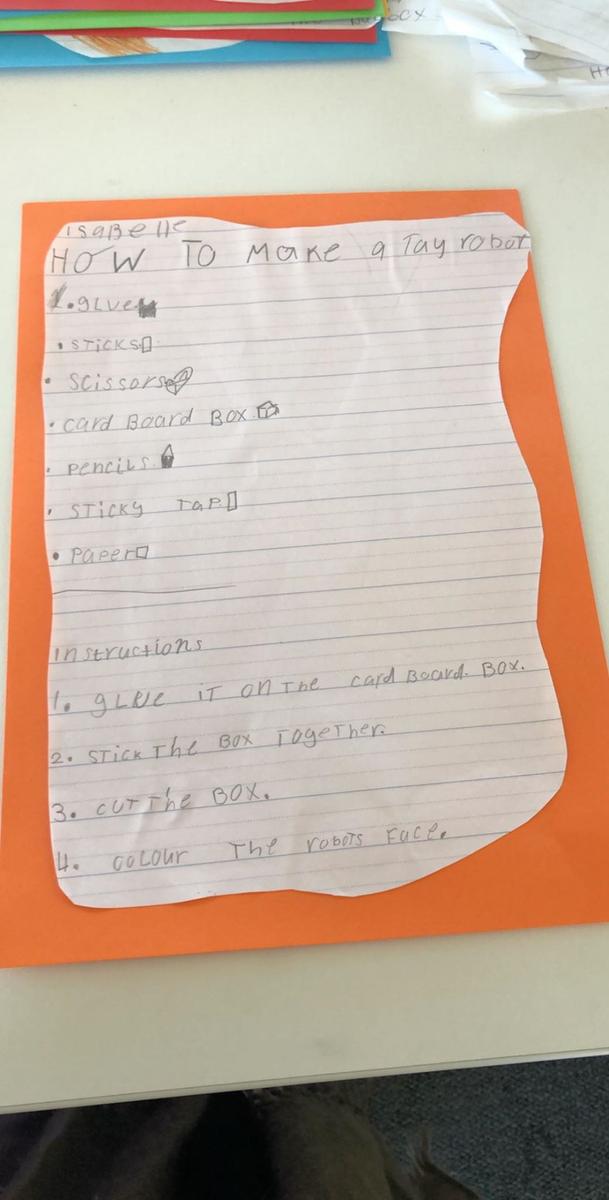 isaBelle
HOW TO Make a Tay robot
1. gLue
• STicKS
• Scissors
• card Board Box
• PenciLs
• STicKy TaP
• PaPer
instructions
1. gLue iT on The card Board. Box.
2. STick The Box Together.
3. cuT The BOX.
4. coLour The roboTs Face.